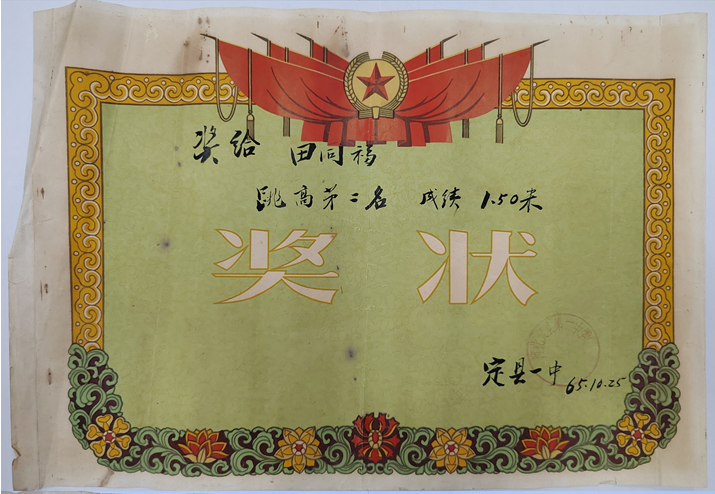 奖给 田同福
跳高第二名 成绩 1.50米
奖状
定县一中 65.10.25